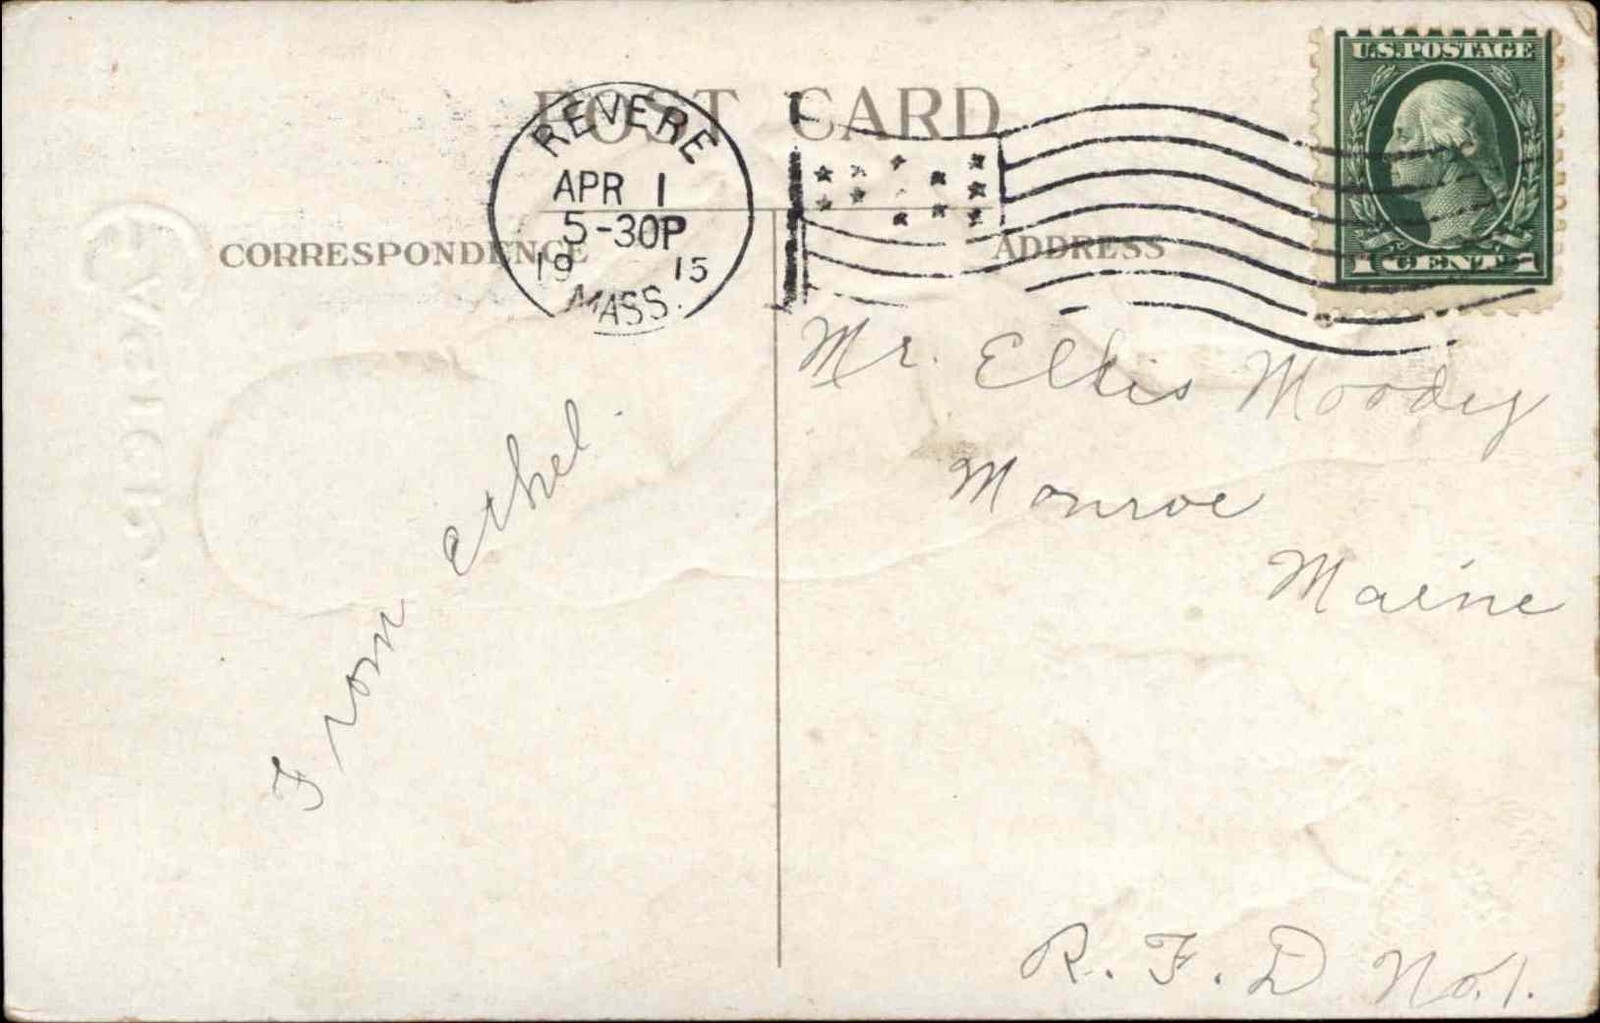 POST CARD
REVERE
APR 1
5-30P
1915
MASS.
U.S. POSTAGE
1 CENT 1
CORRESPONDENCE
ADDRESS
From Ethel.
Mr. Ellis Moody
Monroe
Maine
R. F. D No. 1.